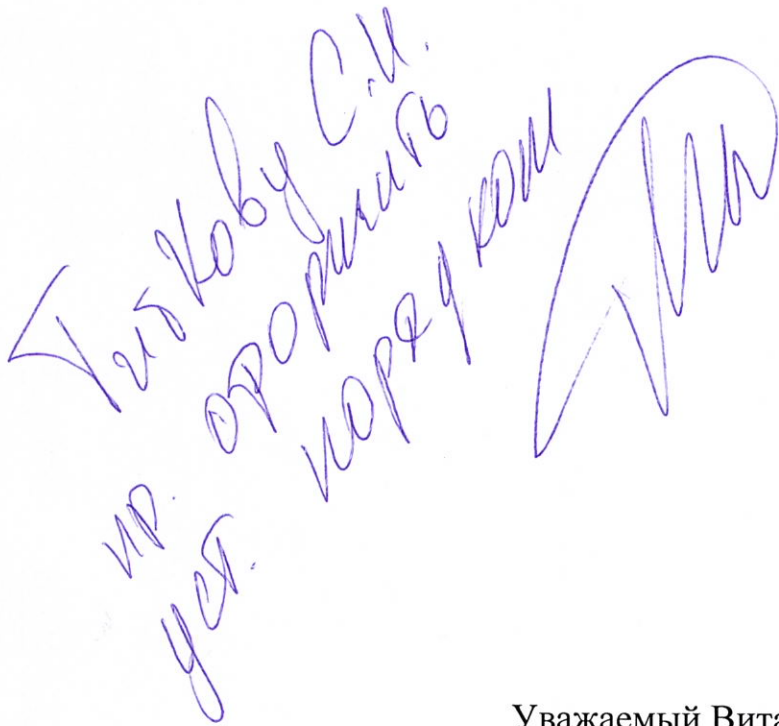 Титкову С.И.
пр. оформить
уст. порядком
Уважаемый Вита